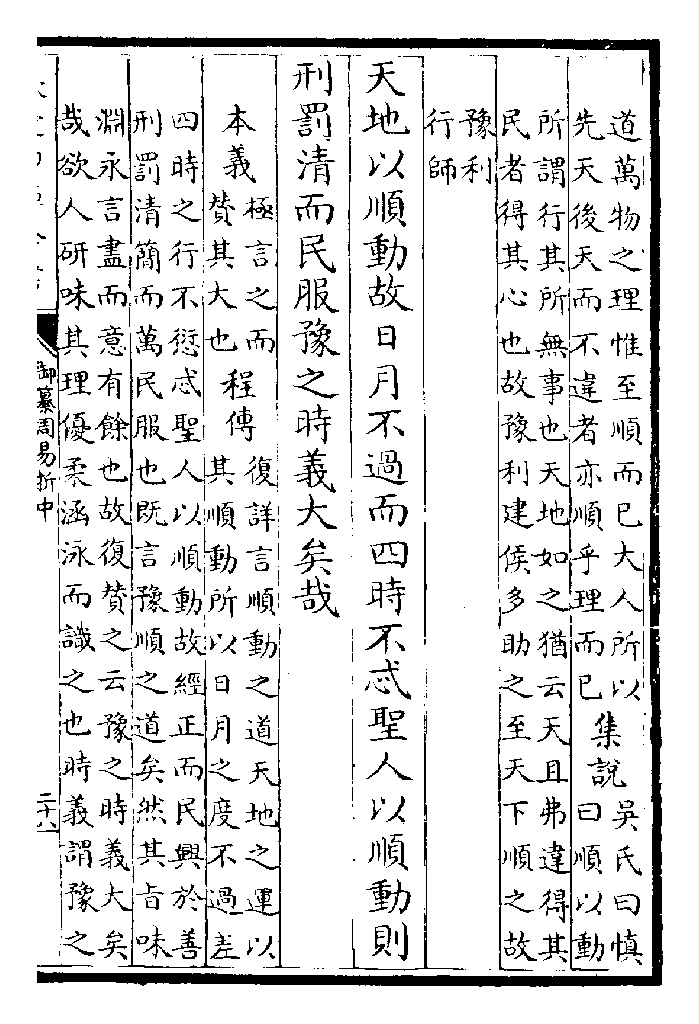 道萬物之理惟至順而已大人所以
先天後天而不違者亦順乎理而已
集說
吳氏曰慎
曰順以動
所謂行其所無事也天地如之猶云天且弗違得其
民者得其心也故豫利建侯多助之至天下順之故
豫利
行師
天地以順動故日月不過而四時不忒聖人以順動則
刑罰清而民服豫之時義大矣哉
本義
極言之而
賛其大也
程傳
復詳言順動之道天地之運以
其順動所以日月之度不過差
四時之行不愆忒聖人以順動故經正而民興於善
刑罰清簡而萬民服也既言豫順之道矣然其旨味
淵永言盡而意有餘也故復賛之云豫之時義大矣
哉欲人研味其理優柔涵泳而識之也時義謂豫之
御纂周易折中
二十八